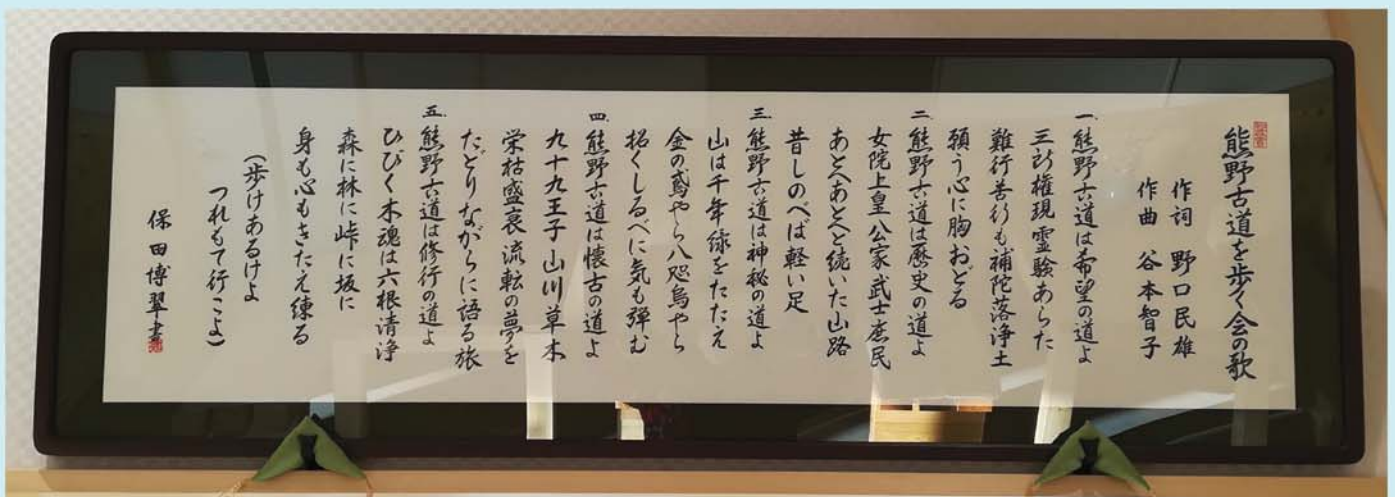 熊野古道を歩く会の歌
作詞 野口民雄
作曲 谷本智子
一、熊野古道は希望の道よ
三所権現霊験あらた
難行苦行も補陀落浄土
願う心に胸おどる
二、熊野古道は歴史の道よ
女院上皇公家武士庶民
あとへあとへと続いた山路
昔しのべば軽い足
三、熊野古道は神秘の道よ
山は千年緑をたたえ
金の鳶やら八咫烏やら
拓くしるべに気も弾む
四、熊野古道は懐古の道よ
九十九王子山川草木
栄枯盛衰流転の夢を
たどりながらに語る旅
五、熊野古道は修行の道よ
ひびく木魂は六根清浄
森に林に峠に坂に
身も心もきたえ練る
（歩けあるけよ
つれもて行こよ）
保田博翠書